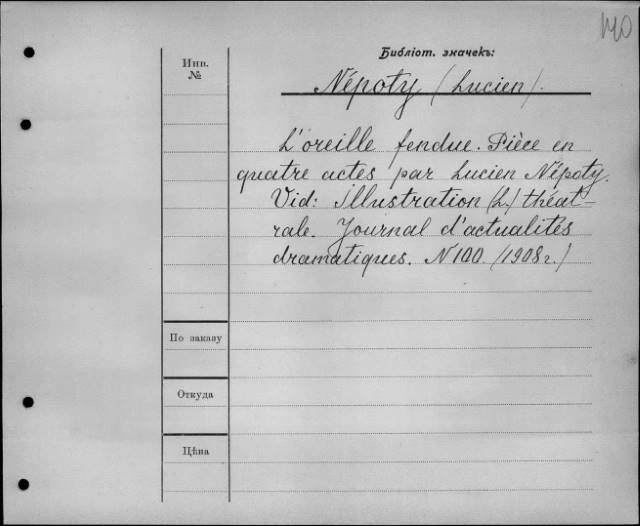 140
Библіот. значекъ:
Инв.
№
Népoty (Lucien).
L'oreille fendue. Pièce en
quatre actes par Lucien Népoty.
Vid: Illustration (L.) théat-
rale. Journal d'actualités
dramatiques. N 100. (1908 г.)
По заказу
Откуда
Цѣна